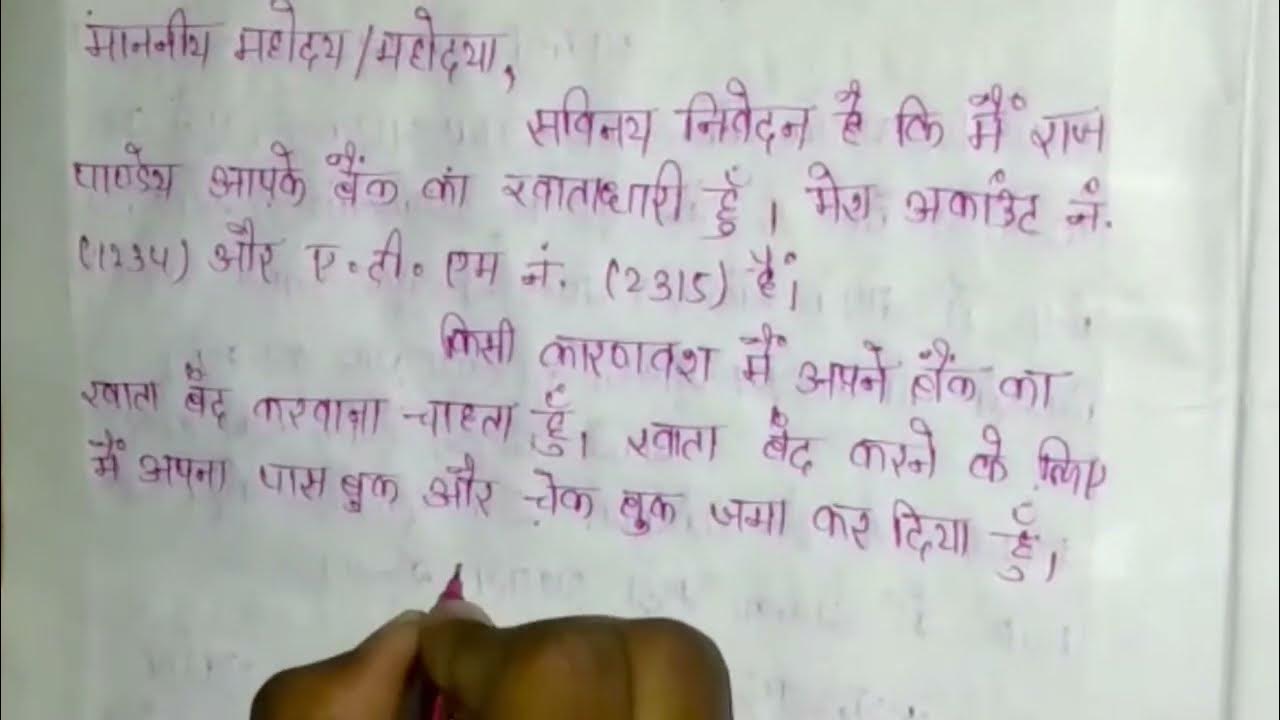 माननीय महोदय/महोदया,
सविनय निवेदन है कि मैं राज
पाण्डेय आपके बैंक का खाताधारी हूँ। मेरा अकांउट नं.
(1234) और ए.टी. एम नं. (2315) हैं।
किसी कारणवश मैं अपने बैंक का
खाता बंद करवाना चाहता हूँ। खाता बंद करने के लिए
मैं अपना पास बुक और चेक बुक जमा कर दिया हूँ।